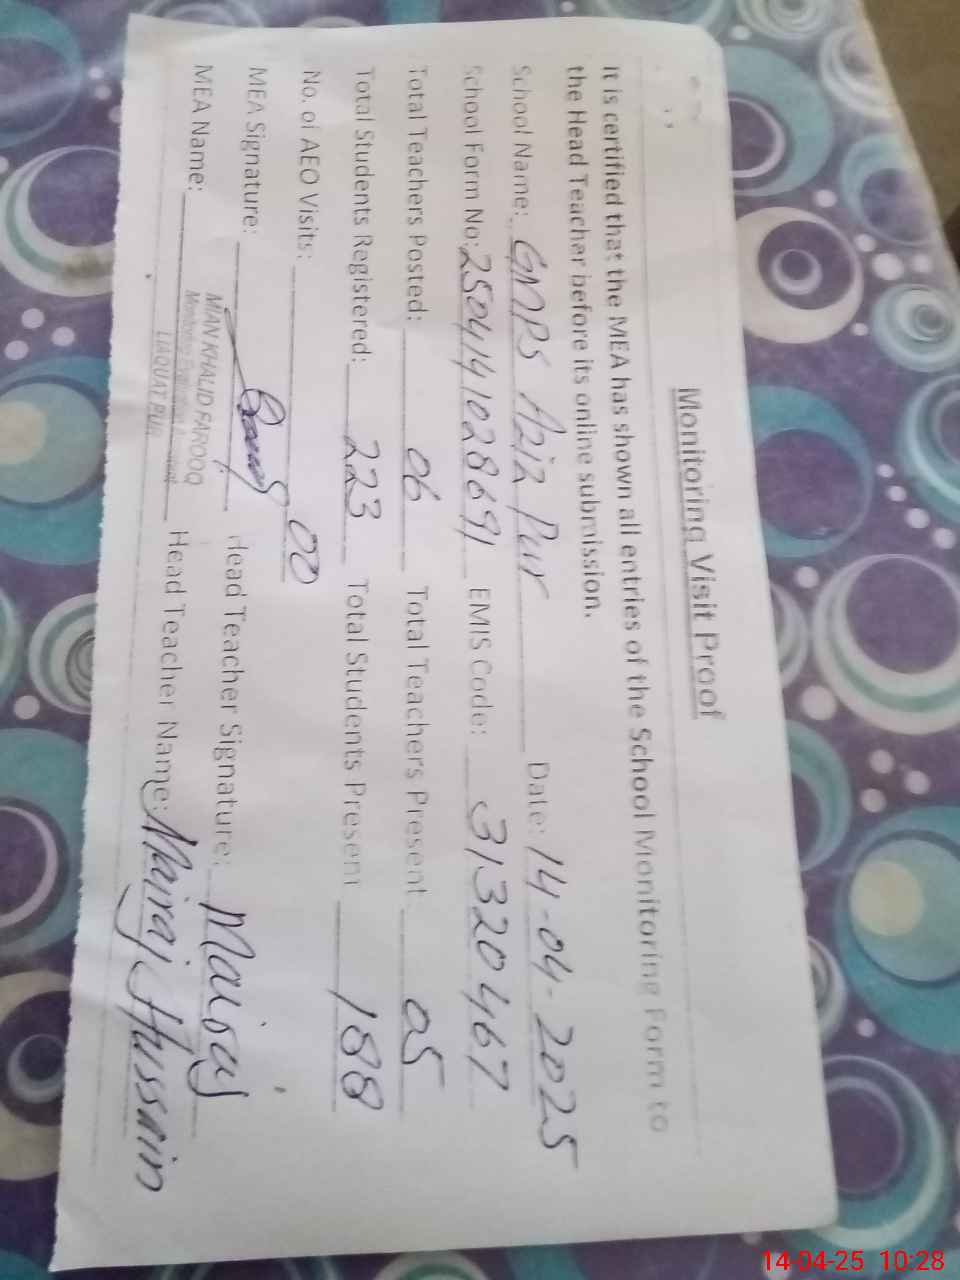 Monitoring Visit Proof
It is certified that the MEA has shown all entries of the School Monitoring Form to
the Head Teacher before its online submission.
School Name: GMPS Aziz Pur Date: 14-04-2025
School Form No: 2504141028691 EMIS Code: 31320467
Total Teachers Posted: 06 Total Teachers Present 05
Total Students Registered: 223 Total Students Present 188
No. of AEO Visits: 00
MEA Signature: Head Teacher Signature:
MIAN KHALID FAROOQ
MEA Name: Head Teacher Name: Mairaj Hussain
LIAQUAT PUR
14-04-25 10:28